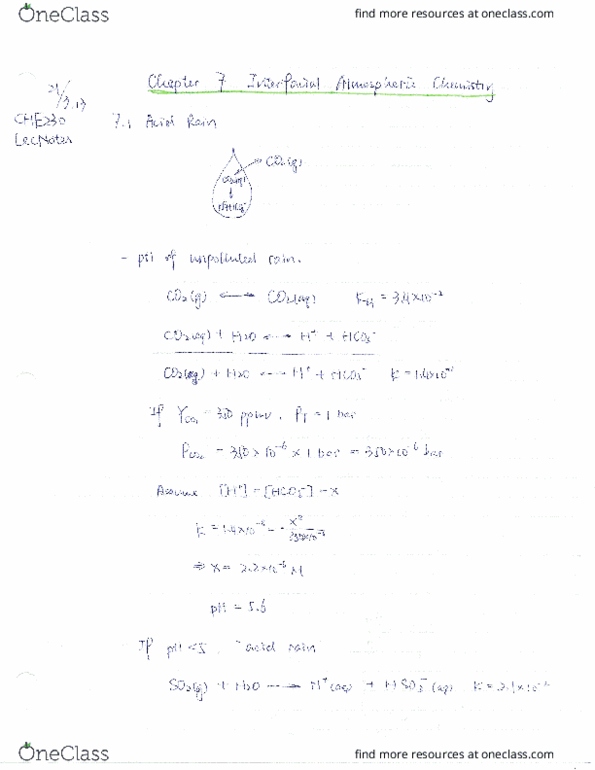 OneClass
find more resources at oneclass.com
Chapter 7 Interfacial Atmospheric Chemistry
21/3.13
CHE230
Lec Notes
7.1 Acid Rain
CO₂(g)
CO₂(aq)
- pH of unpolluted rain.
CO₂(g) ⟷ CO₂(aq) K_H = 3.4×10⁻²
CO₂(aq) + H₂O ⟷ H⁺ + HCO₃⁻
CO₂(g) + H₂O ⟷ H⁺ + HCO₃⁻ K = 1.4×10⁻⁸
If Y_CO₂ = 350 ppmv, P_T = 1 bar
P_CO₂ = 350×10⁻⁶ × 1 bar = 350×10⁻⁶ bar
Assume [H⁺] = [HCO₃⁻] = x
K = 1.4×10⁻⁸ = x²/350×10⁻⁶
⇒ x = 2.2×10⁻⁶ M
pH = 5.6
If pH < 5, acid rain
SO₂(g) + H₂O ⟶ H⁺(aq) + HSO₃⁻(aq) K = 2.1×10⁻²
OneClass
find more resources at oneclass.com